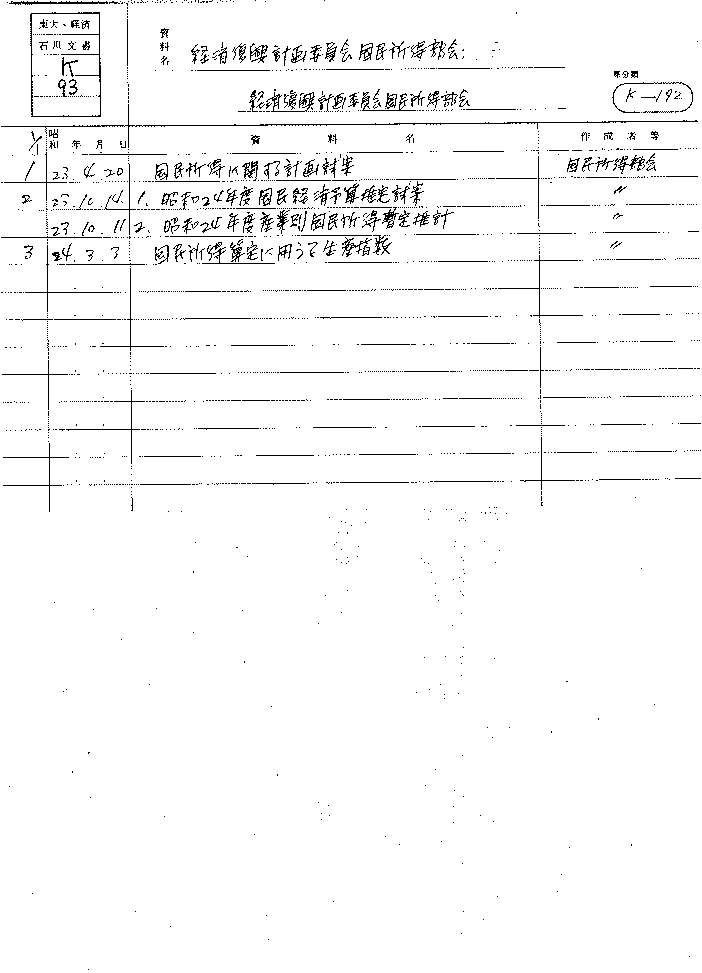 東大・経済
石川文書
K
93
資料名
経済復興計画委員会国民所得部会
経済復興計画委員会国民所得部会
原分類
K-192
1/1 昭和 年 月 日 資料名 作成者等
1 23. 4. 20 国民所得に関する計画試案 国民所得部会
2 23. 10. 14. 1. 昭和24年度国民経済予算推定試案 〃
23. 10. 11 2. 昭和24年度産業別国民所得暫定推計 〃
3 24. 3. 3 国民所得算定に用うる生産指数 〃